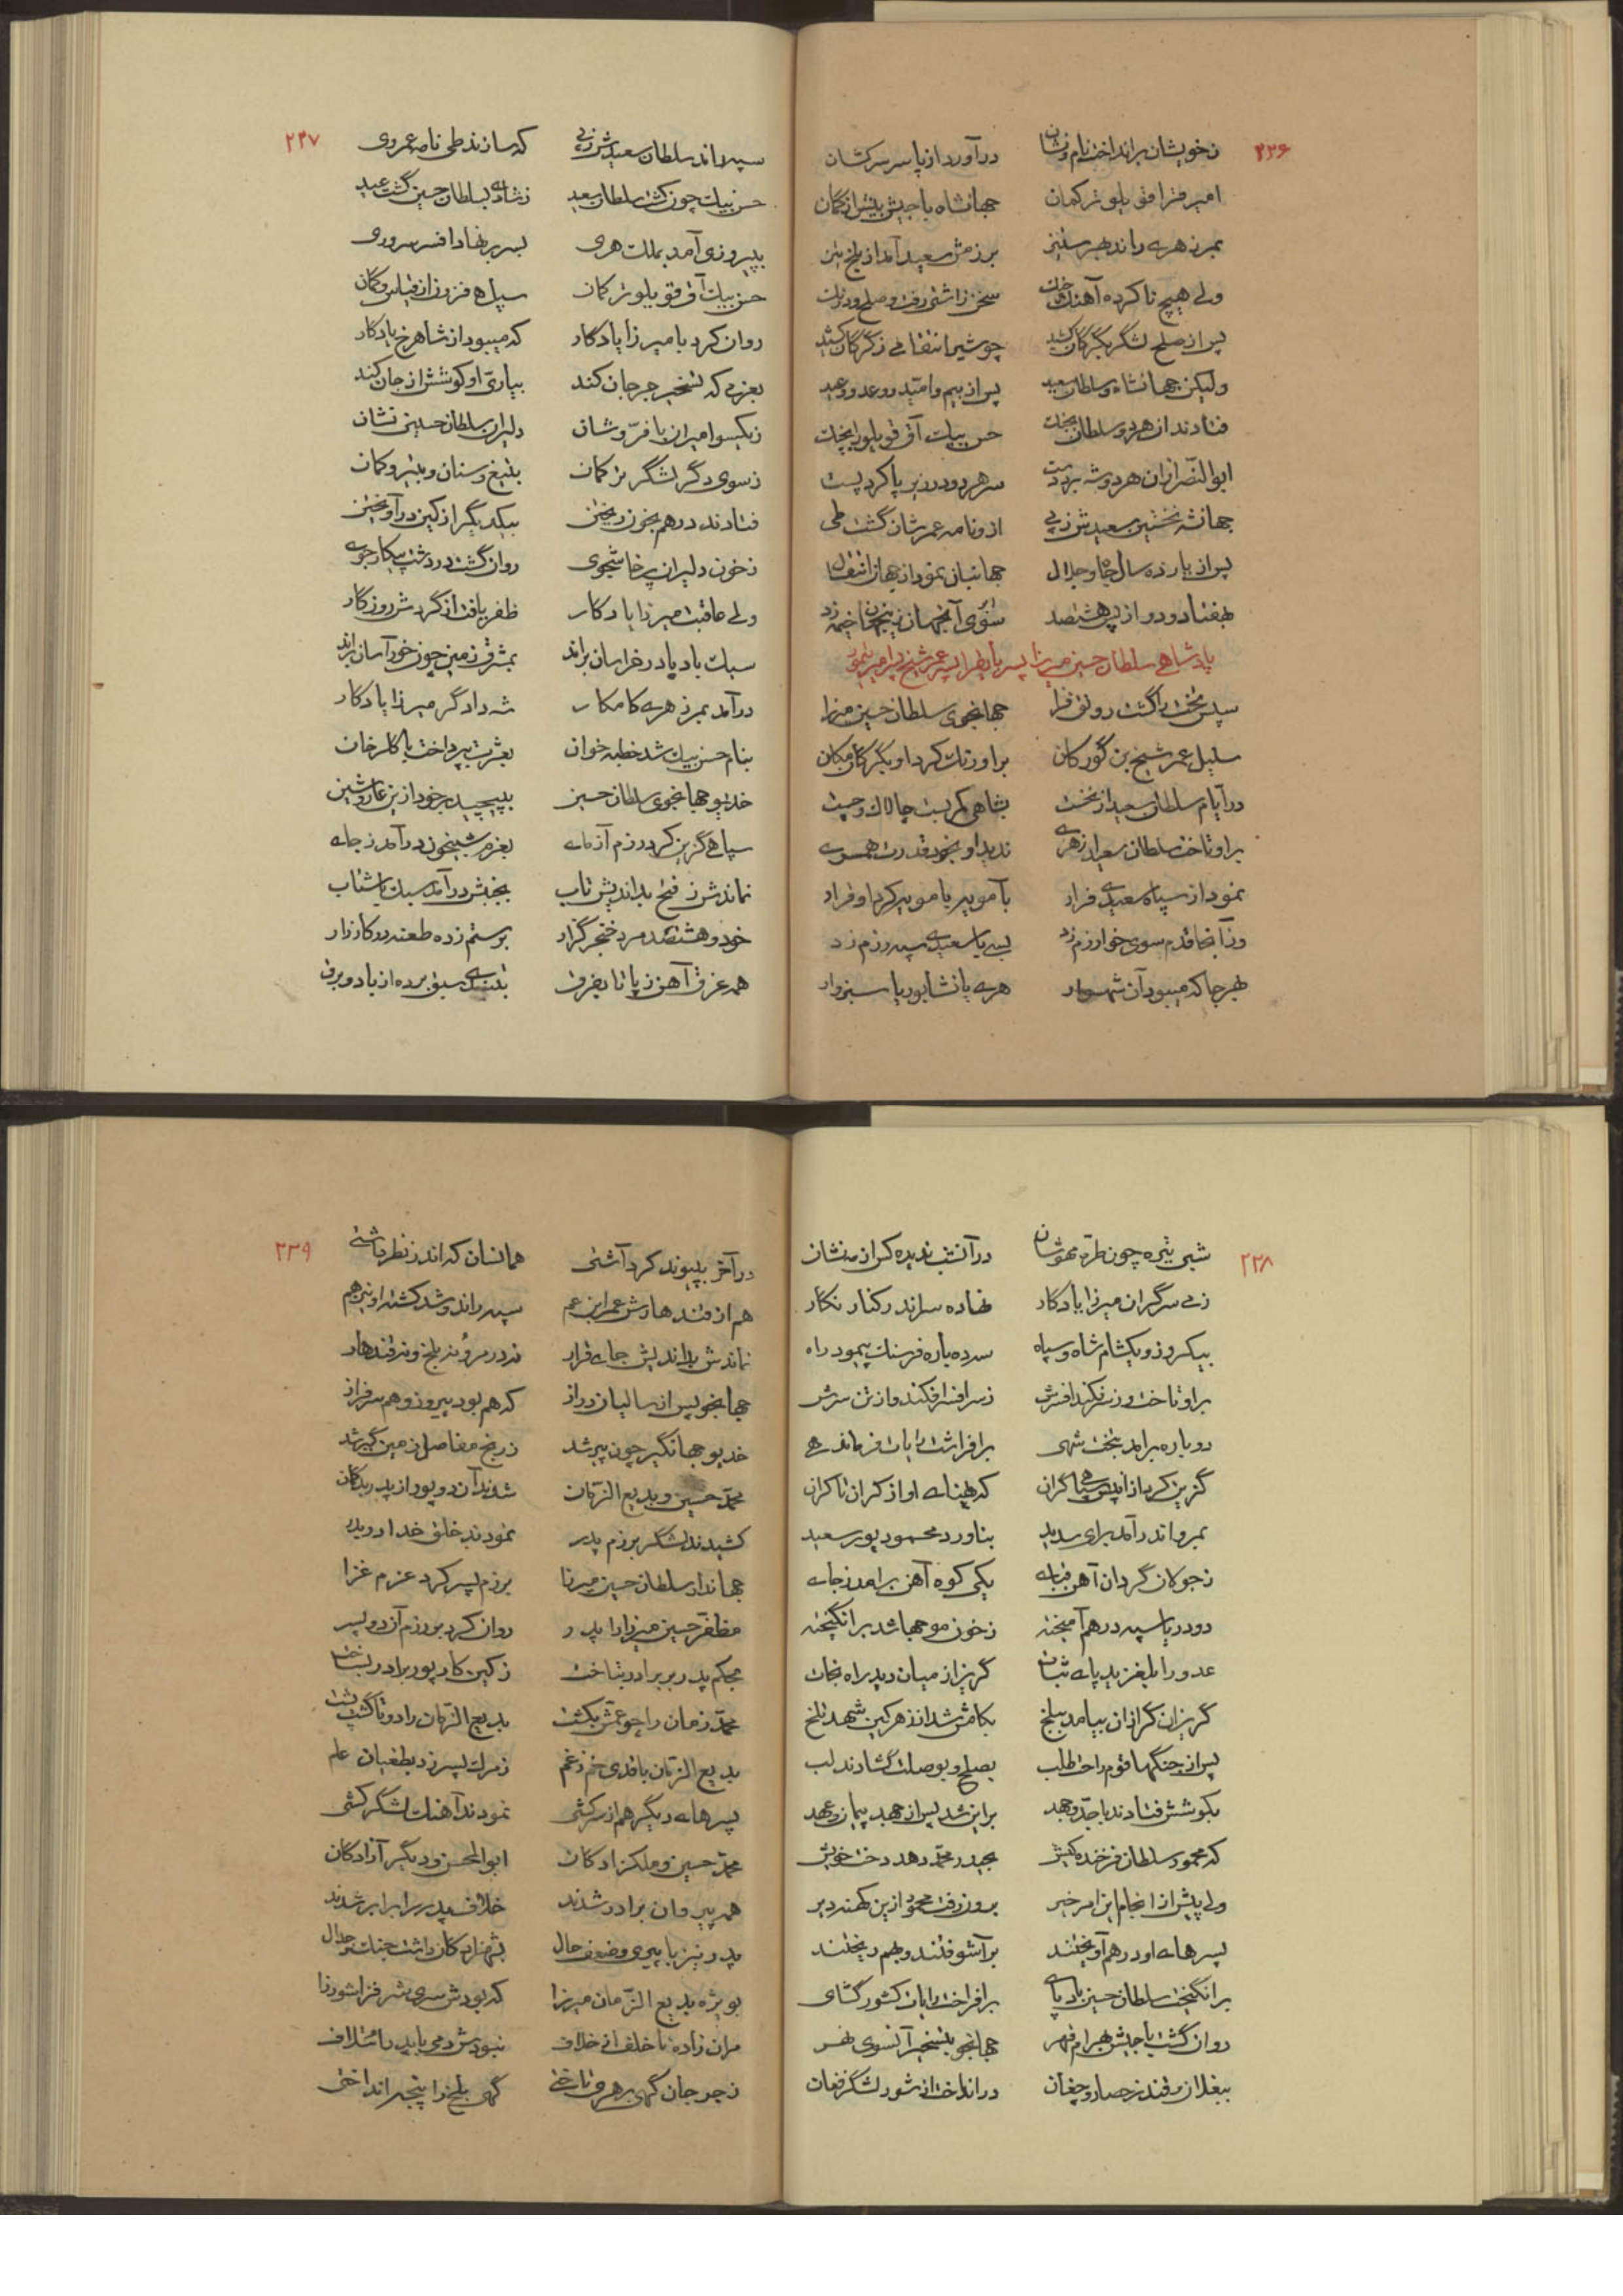 ۲۳۶
ز خویشان برانداخت نام و نشان در آورد از پا سر سرکشان
امیر قراقوی یلو ترکمان جهانشاه با جیش بیش از گمان
بمرز هری راند بهر ستیز برزمش سعید آمد از بلخ نیز
ولی هیچ ناکرده آهنگ جنگ سخن زاشتی رفت و صلح و درنگ
پس از صلح لشگر بگرگان کشید چو شیر انتقامی ز گرگان کشید
ولیکن جهانشاه و سلطان سعید پس از بیم و امید و وعد و وعید
فتادند از هر دو سلطان بجنگ حسن بیک آق قویلو را بچنگ
ابوالنصر ازان هر دو شه برد دست سر هر دو در زیر پا کرد پست
جهانشه نخستین سعیدش ز پی ازو نامه عمرشان گشت طی
پس از یازده سال جاه و جلال جهانبان نمود از جهان انتقال
بهفتاد و دو از پس هشتصد سوی آنجهان زینجهان خیمه زد
پادشاهی سلطان حسین میرزا پسر بایقرا پسر عمر شیخ پسر امیر تیمور
سپس تخت را گشت رونق فزا جهانجوی سلطان حسین میرزا
سلیل عمر شیخ بن گورکان براورنگ کرد او بگرگان مکان
در ایام سلطان سعید از نخست بشاهی کمر بست چالاک و چست
براو تاخت سلطان سعید از هری ندید او بخود قدرت همسری
نمود از سپاه سعیدی فرار بآمویه با مویه کرد او قرار
وز آنجا قدم سوی خوارزم زد بسی با سعیدی سپه رزم زد
بهر جا که میبود آن شهسوار هری یا نشابور یا سبزوار
۲۳۷
سپه راند سلطان سعیدش ز پی که سازند طی نامه عمر وی
حسن بیک چون کشت سلطان سعید ز شادی بسلطان حسین گشت عید
بپیروزی آمد بملک هری بسر بر نهاد افسر سروری
حسن بیک آق قویلو ترکمان سپاهی فزون از قیاس و گمان
روان کرد با میرزا یادگار که میبود از شاهرخ یادگار
بعزمی که تسخیر جرجان کند بیاری او کوشش از جان کند
ز یکسو امیران با فرّ و شان دلیران سلطان حسینی نشان
ز سوی دگر لشگر ترکمان بتیغ و سنان و بتیر و کمان
فتادند درهم بخون ریختن بیکدیگر از کین درآویختن
ز خون دلیران پرخاشجوی روان گشت در دشت پیکار جوی
ولی عاقبت میرزا یادگار ظفر یافت از گردش روزگار
سبک بادپا در خراسان براند بمشرق زمین چون خور آسان براند
درآمد بمرز هری کامکار شه دادگر میرزا یادگار
بنام حسن بیک شد خطبه خوان بعشرت بپرداخت با گلرخان
خدیو جهانجوی سلطان حسین بپیچید بر خود ازین عار و شین
سپاهی گزین کرد رزم آزمای بعزم شبیخون درآمد ز جای
نماندش ز فتح بداندیش تاب بجنبش درآمد سبک با شتاب
خود و هشتصد مرد خنجر گزار برستم زده طعنه در کارزار
همه غرق آهن ز پا تا بفرق بتندی سبق برده از باد و برق
۲۳۸
شبی تیره چون طرّه مهوشان در آنشب ندیده کس از مه نشان
ز می سرگران میرزا یادگار نهاده سر اندر کنار نگار
بیکروز و یکشام شاه و سپاه سه ده باره فرسنگ پیمود راه
براو تاخت وز سر فکند افسرش ز سر افسر افکند و از تن سرش
دوباره برآمد بتخت شهی برافراشت رایات فرماندهی
گزین کرد از آنپس سپاهی گران که پهنای او از کران تا کران
بمرو اندر آمد برای سدید بناورد محمود پور سعید
ز جولان گردان آهن قبای یکی کوه آهن برآمد ز جای
دو دریا سپه درهم آمیخته ز خون موجها شد برانگیخته
عدو را بلغزید پای ثبات گریز از میان دید راه نجات
گریزان گرازان بیامد ببلخ بکامش شد از زهر کین شهد تلخ
پس از جنگها قوم راحت طلب بصلح و بوصلت گشادند لب
بکوشش فتادند با جدّ و جهد براین شد پس از جهد پیمان و عهد
که محمود سلطان فرخنده کیش بحیدر محمّد دهد دخت خویش
ولی پیش از انجام این امر خیر برون رفت محمود ازین کهنه دیر
پسرهای او درهم آویختند برآشوفتند و بهم ریختند
برانگیخت سلطان حسین بادپای برافراخت رایات کشور گشای
روان گشت با جیش بهرام قهر جهانجو بتسخیر آنسوی نهر
ببغلان و قندز حصار و چغان در انداخت از شور لشگر فغان
۲۳۹
در آخر بپیوند کرد آشتی همانسان که اندر نظر داشتی
هم از قندهارش عمر ابن عم سپه راند و شد کشته او نیز هم
نماندش بداندیش جای قرار نه در مرو نه بلخ و نه قندهار
جهانجو پس از سالیان دراز که هم بود پیروز و هم سرفراز
خدیو جهانگیر چون پیر شد ز رنج مفاصل زمین گیر شد
محمّد حسین و بدیع الزّمان شدند آن دو پور از پدر بدگمان
کشیدند لشگر برزم پدر نمودند خلق خدا در بدر
جهاندار سلطان حسین میرزا برزم پسر کرد عزم غزا
مظفّر حسین میرزا را پدر روان کرد بر رزم آن دو پسر
بحکم پدر بر برادر بتاخت ز کین کار پور برادر بساخت
محمّد زمان را چو عمّش بکشت بدیع الزّمان را دوتا گشت پشت
بدیع الزّمان با قدی خم ز غم ز مرگ پسر زد بطغیان علم
پسرهای دیگر هم از سرکشی نمودند آهنگ لشگر کشی
محمّد حسین و ملکزادگان ابوالمحسن و دیگر آزادگان
همه پیروان برادر شدند خلاف پدر را برابر شدند
پدر نیز با پیری و ضعف حال بشهزادگان داشت جنگ و جدال
بویژه بدیع الزّمان میرزا که بودش سری شر فزا شور زا
مران زاده ناخلف از خلاف نبودش دمی با پدر ائتلاف
ز جرجان گهی بر هری تاختی گهی بلخ را پنجه انداختی